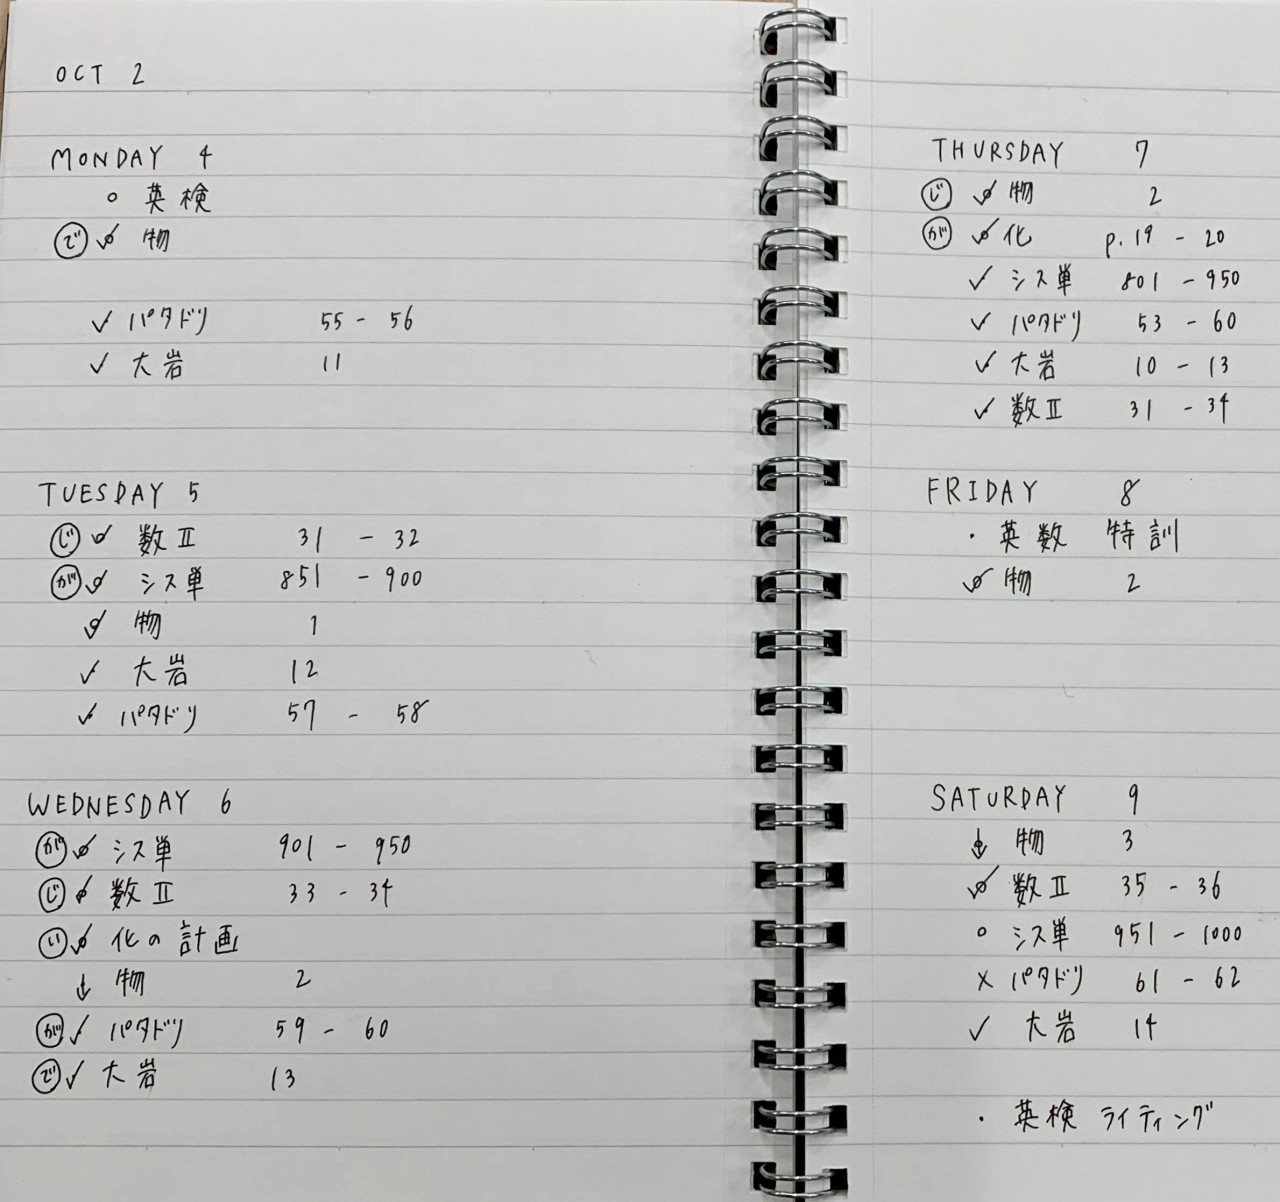 OCT 2
MONDAY 4
○ 英検
で ✓ 物
✓ パタドリ 55 - 56
✓ 大岩 11
TUESDAY 5
じ ✓ 数Ⅱ 31 - 32
が ✓ シス単 851 - 900
✓ 物 1
✓ 大岩 12
✓ パタドリ 57 - 58
WEDNESDAY 6
が ✓ シス単 901 - 950
じ ✓ 数Ⅱ 33 - 34
い ✓ 化の計画
↓ 物 2
が ✓ パタドリ 59 - 60
で ✓ 大岩 13
THURSDAY 7
じ ✓ 物 2
が ✓ 化 p.19 - 20
✓ シス単 801 - 950
✓ パタドリ 53 - 60
✓ 大岩 10 - 13
✓ 数Ⅱ 31 - 34
FRIDAY 8
・英数 特訓
✓ 物 2
SATURDAY 9
↓ 物 3
✓ 数Ⅱ 35 - 36
○ シス単 951 - 1000
× パタドリ 61 - 62
✓ 大岩 14
・英検 ライティング